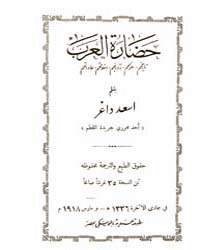 حضارة العرب
تاريخهم
بقلم
اسعد داغر
( احد محرري جريدة المقطم )
حقوق الطبع والترجمة محفوظة
ثمن النسخة ٣٥ غرشاً صاغاً
في جمادى الآخرة ١٣٣٦ ه – و مارس ١٩١٨ م